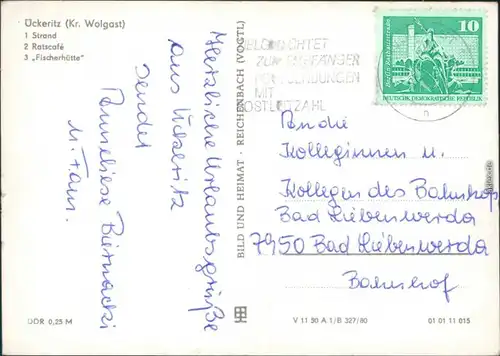 Ückeritz (Kr. Wolgast)
1 Strand
2 Ratscafé
3 „Fischerhütte"
Herzliche Urlaubsgrüße
aus Ückeritz
sendet
Anneliese Biernacki
u. Fam.
DDR 0,25 M
BILD UND HEIMAT · REICHENBACH (VOGTL)
ZUM EMPFÄNGER
MIT
POSTLEITZAHL
10
DEUTSCHE DEMOKRATISCHE REPUBLIK
An die
Kolleginnen u.
Kollegen des Bahnhof
Bad Liebenwerda
7950 Bad Liebenwerda
Bahnhof
V 11 50 A 1/B 327/80
01 01 11 015